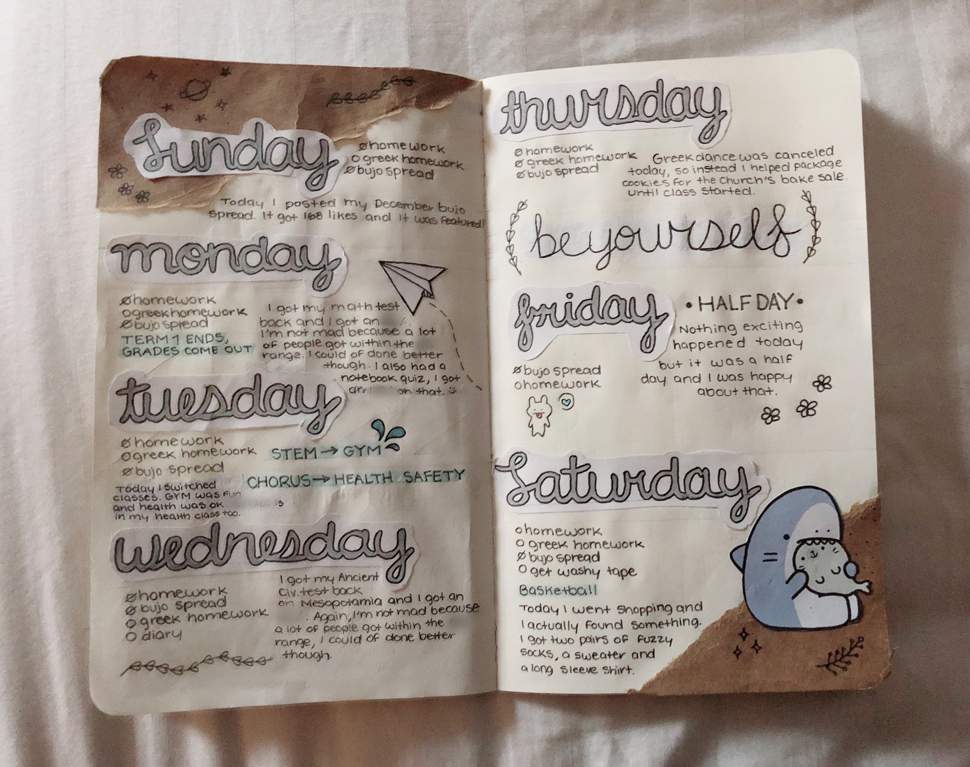 Sunday
øhomework
o greek homework
øbujo spread
Today I posted my December bujo
spread. It got 168 likes and it was featured!
monday
øhomework
ogreekhomework
øbujo spread
TERM 1 ENDS,
GRADES COME OUT
I got my math test
back and I got an
I'm not mad because a lot
of people got within the
range. I could of done better
though. I also had a
notebook quiz, I got
an on that.
tuesday
øhomework
ogreek homework
øbujo spread
STEM → GYM
CHORUS → HEALTH SAFETY
Today I switched
classes. GYM was fun
and health was ok is
in my health class too.
wednesday
øhomework
øbujo spread
ogreek homework
o diary
I got my Ancient
Civ. test back
on Mesopotamia and I got an
. Again, I'm not mad because
a lot of people got within the
range, I could of done better
though.
thursday
øhomework
ø greek homework
øbujo spread
Greek dance was canceled
today, so instead I helped package
cookies for the church's bake sale.
until class started.
be yourself
friday
• HALF DAY •
øbujo spread
ohomework
Nothing exciting
happened today
but it was a half
day and I was happy
about that.
Saturday
ohomework
o greek homework
øbujo spread
o get washy tape
Basketball
Today I went shopping and
I actually found something.
I got two pairs of fuzzy
socks, a sweater and
a long sleeve shirt.